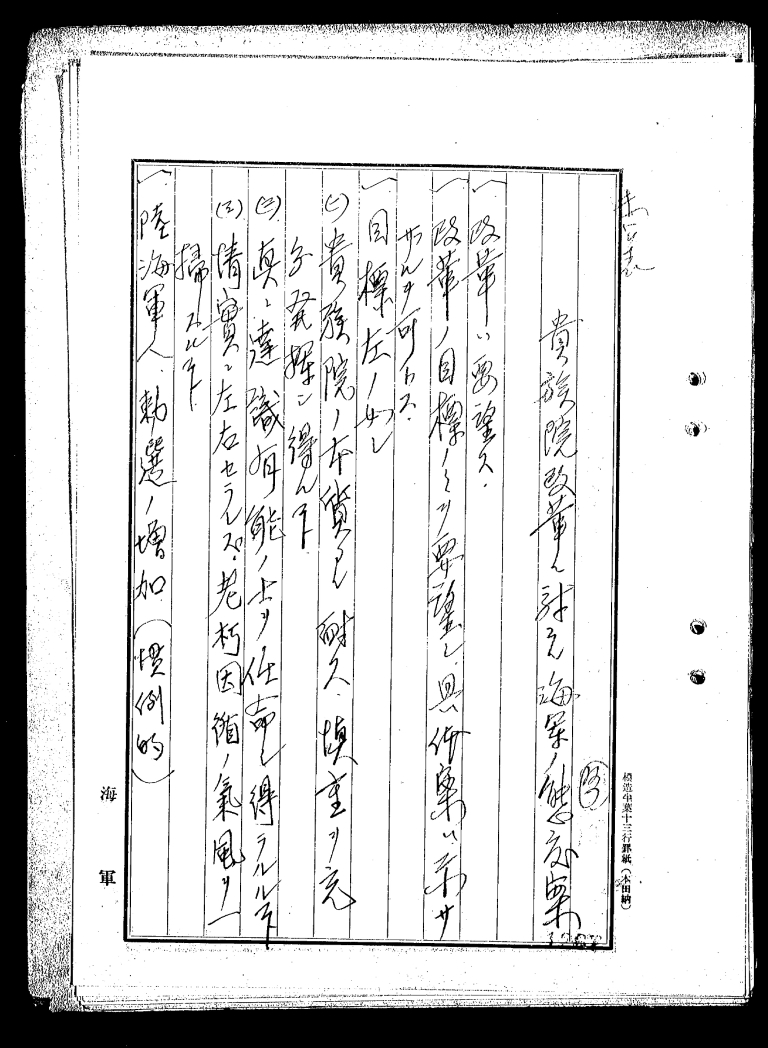 貴族院改革ニ対スル海軍ノ態度案
一、改革ハ要望ス.
一、改革ノ目標ノミヲ要望シ、具体案ハ示サ
サルヲ可トス.
一、目標左ノ如シ
(一)貴族院ノ本質タル耐久、慎重ヲ充
分発揮シ得ルコト
(二)真ニ達識有能ノ士ヲ任命シ得ラルルコト
(三)情實ニ左右セラレズ、老朽因循ノ氣風ヲ一
掃スルコト
一、陸海軍人勅選ノ増加(慣例的)
海軍